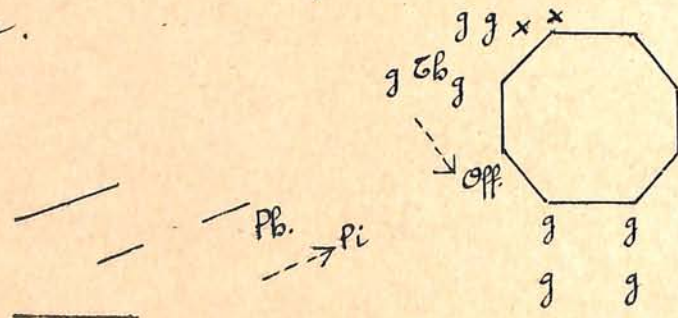 g g x x
g Th g
Off.
Ph. Pi
g g
g g